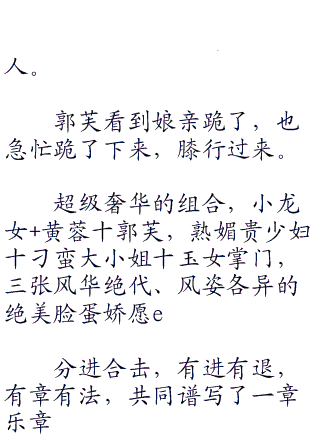 人。
郭芙看到娘亲跪了，也
急忙跪了下来，膝行过来。
超级奢华的组合，小龙
女+黄蓉十郭芙，熟媚贵少妇
十刁蛮大小姐十玉女掌门，
三张风华绝代、风姿各异的
绝美脸蛋娇愿e
分进合击，有进有退，
有章有法，共同谱写了一章
乐章